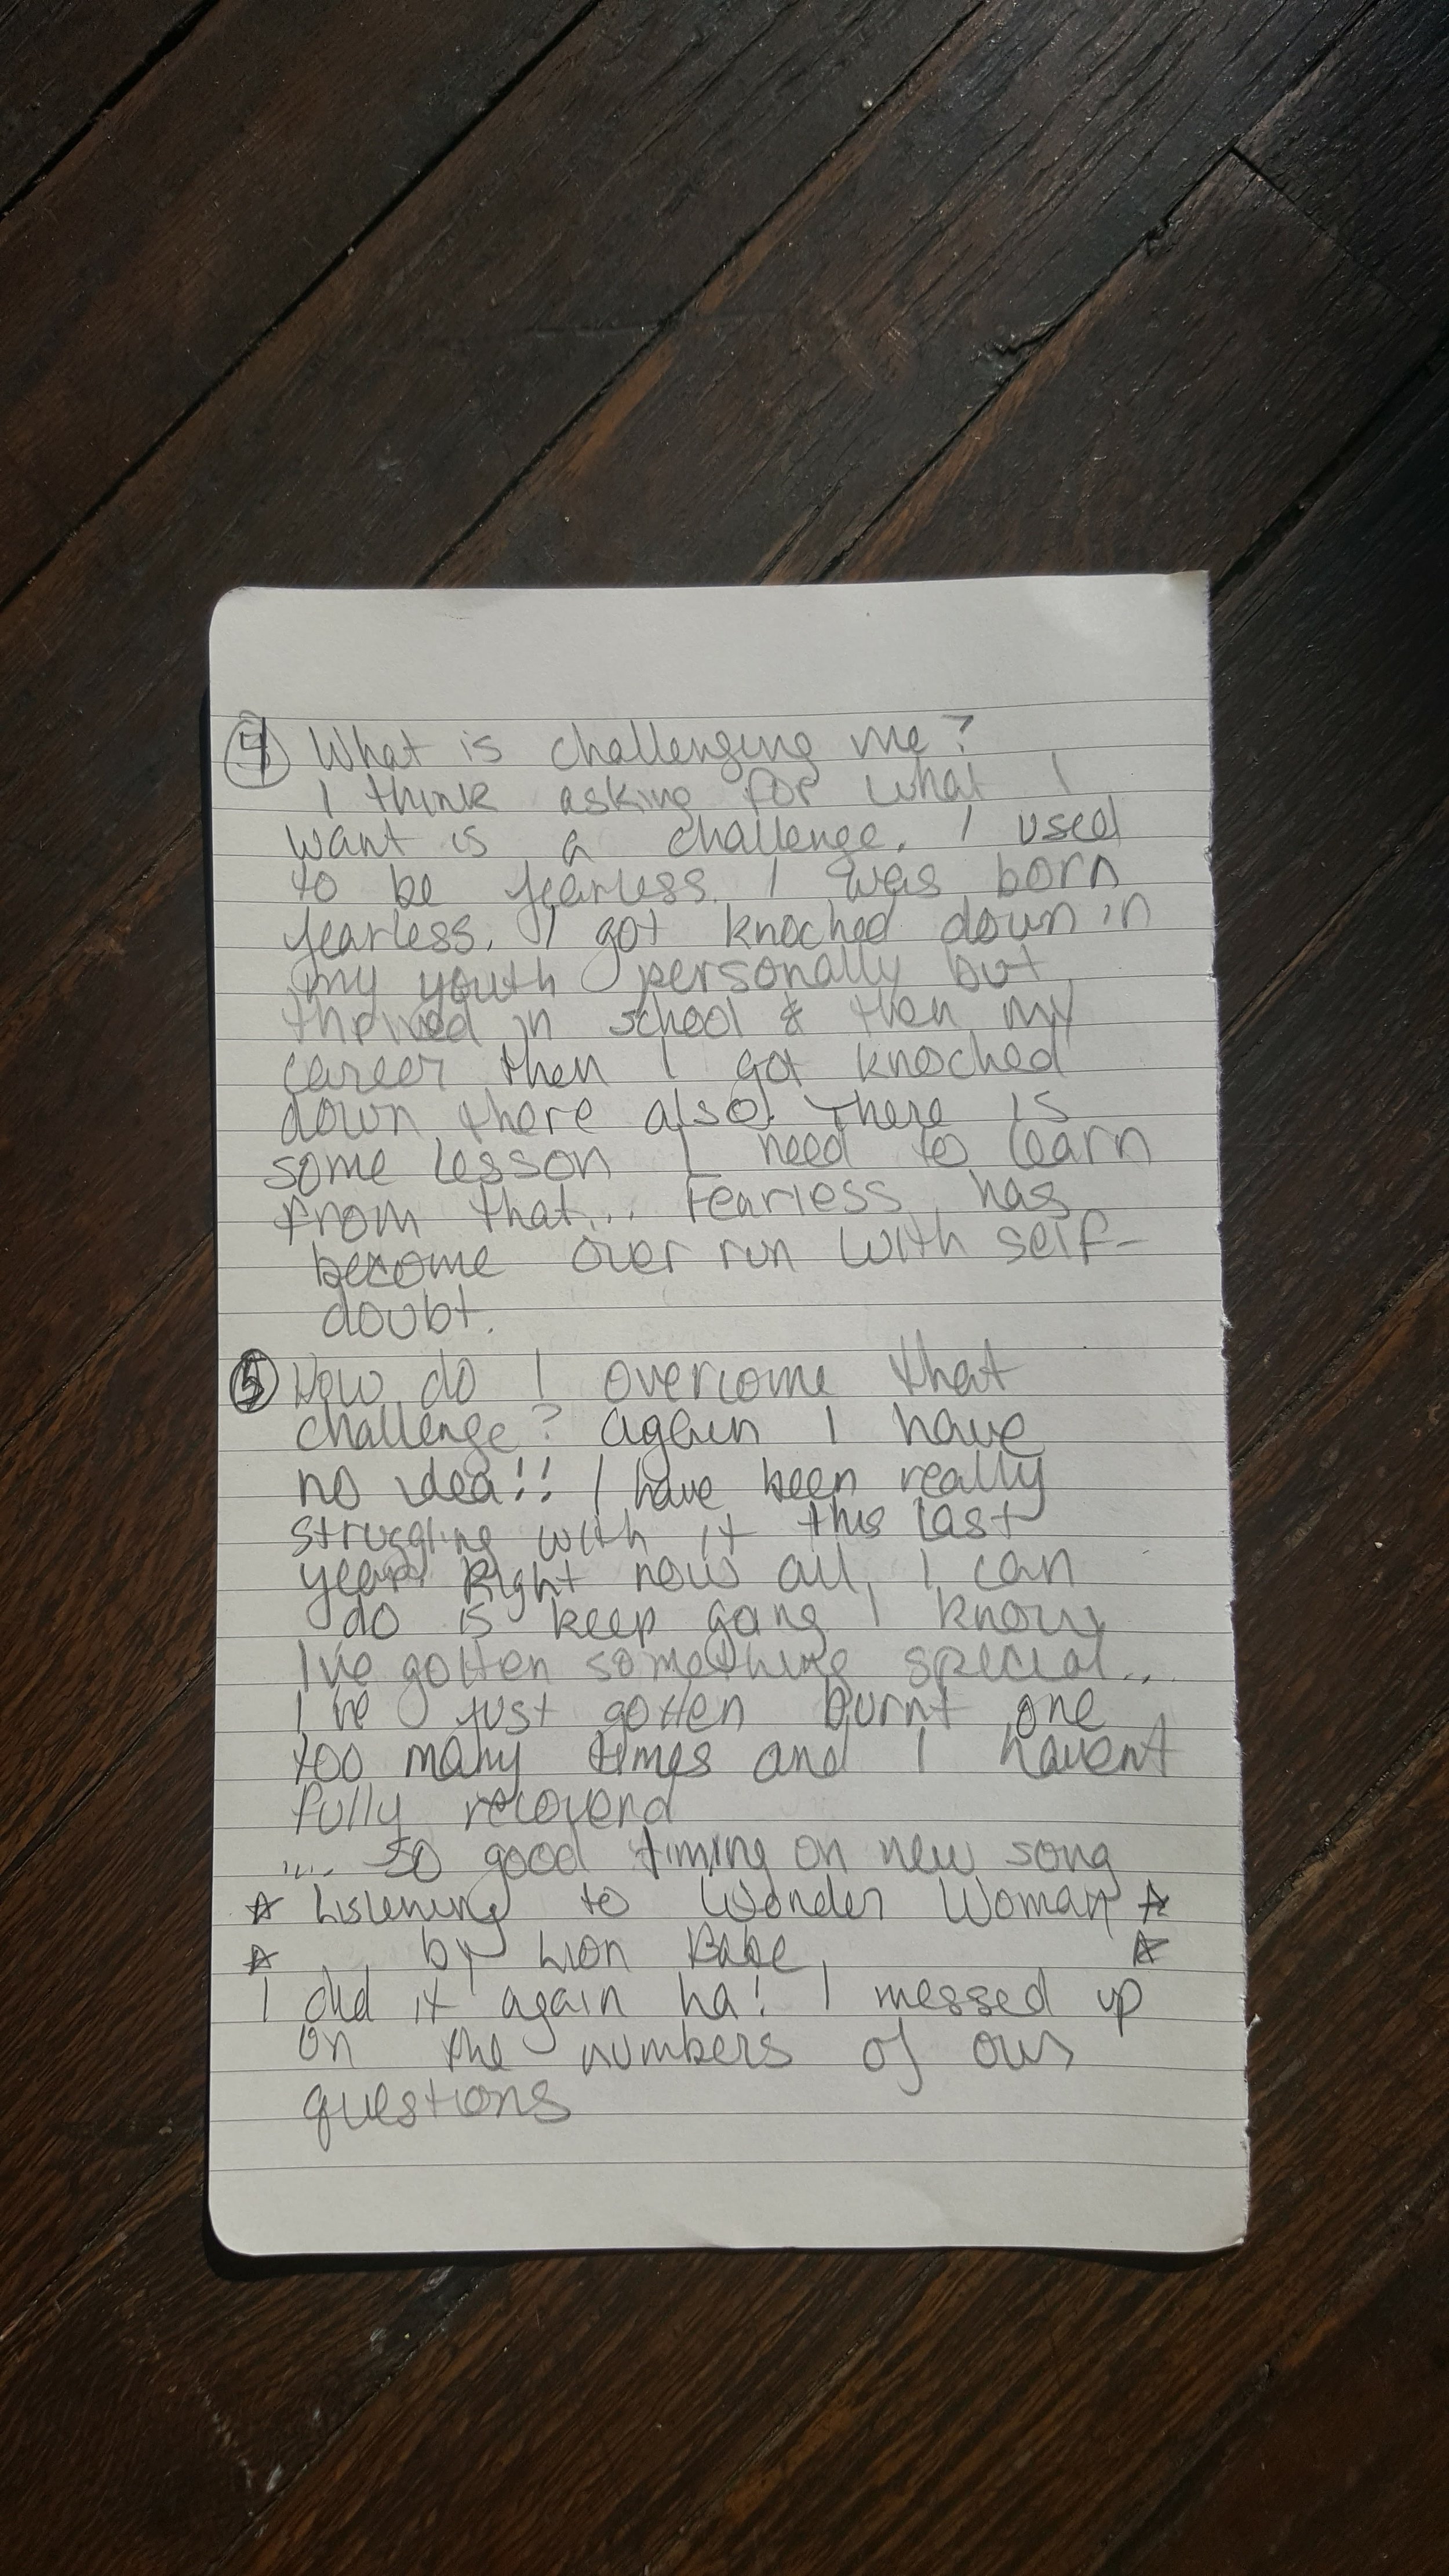 ④ What is challenging me?
I think asking for what I
want is a challenge. I used
to be fearless. I was born
fearless. I got knocked down in
my youth personally but
thrived in school & then my
career then I got knocked
down there also. There is
some lesson I need to learn
from that... Fearless has
become over run with self-
doubt.
⑤ How do I overcome that
challenge? Again I have
no idea!! I have been really
struggling with it this last
year. Right now all I can
do is keep going I know
I've gotten something special...
I've just gotten burnt one
too many times and I havent
fully recoverd
.... so good timing on new song
☆ Listening to Wonder Woman ☆
☆ by Lion Babe, ☆
I did it again ha! I messed up
on the numbers of our
questions